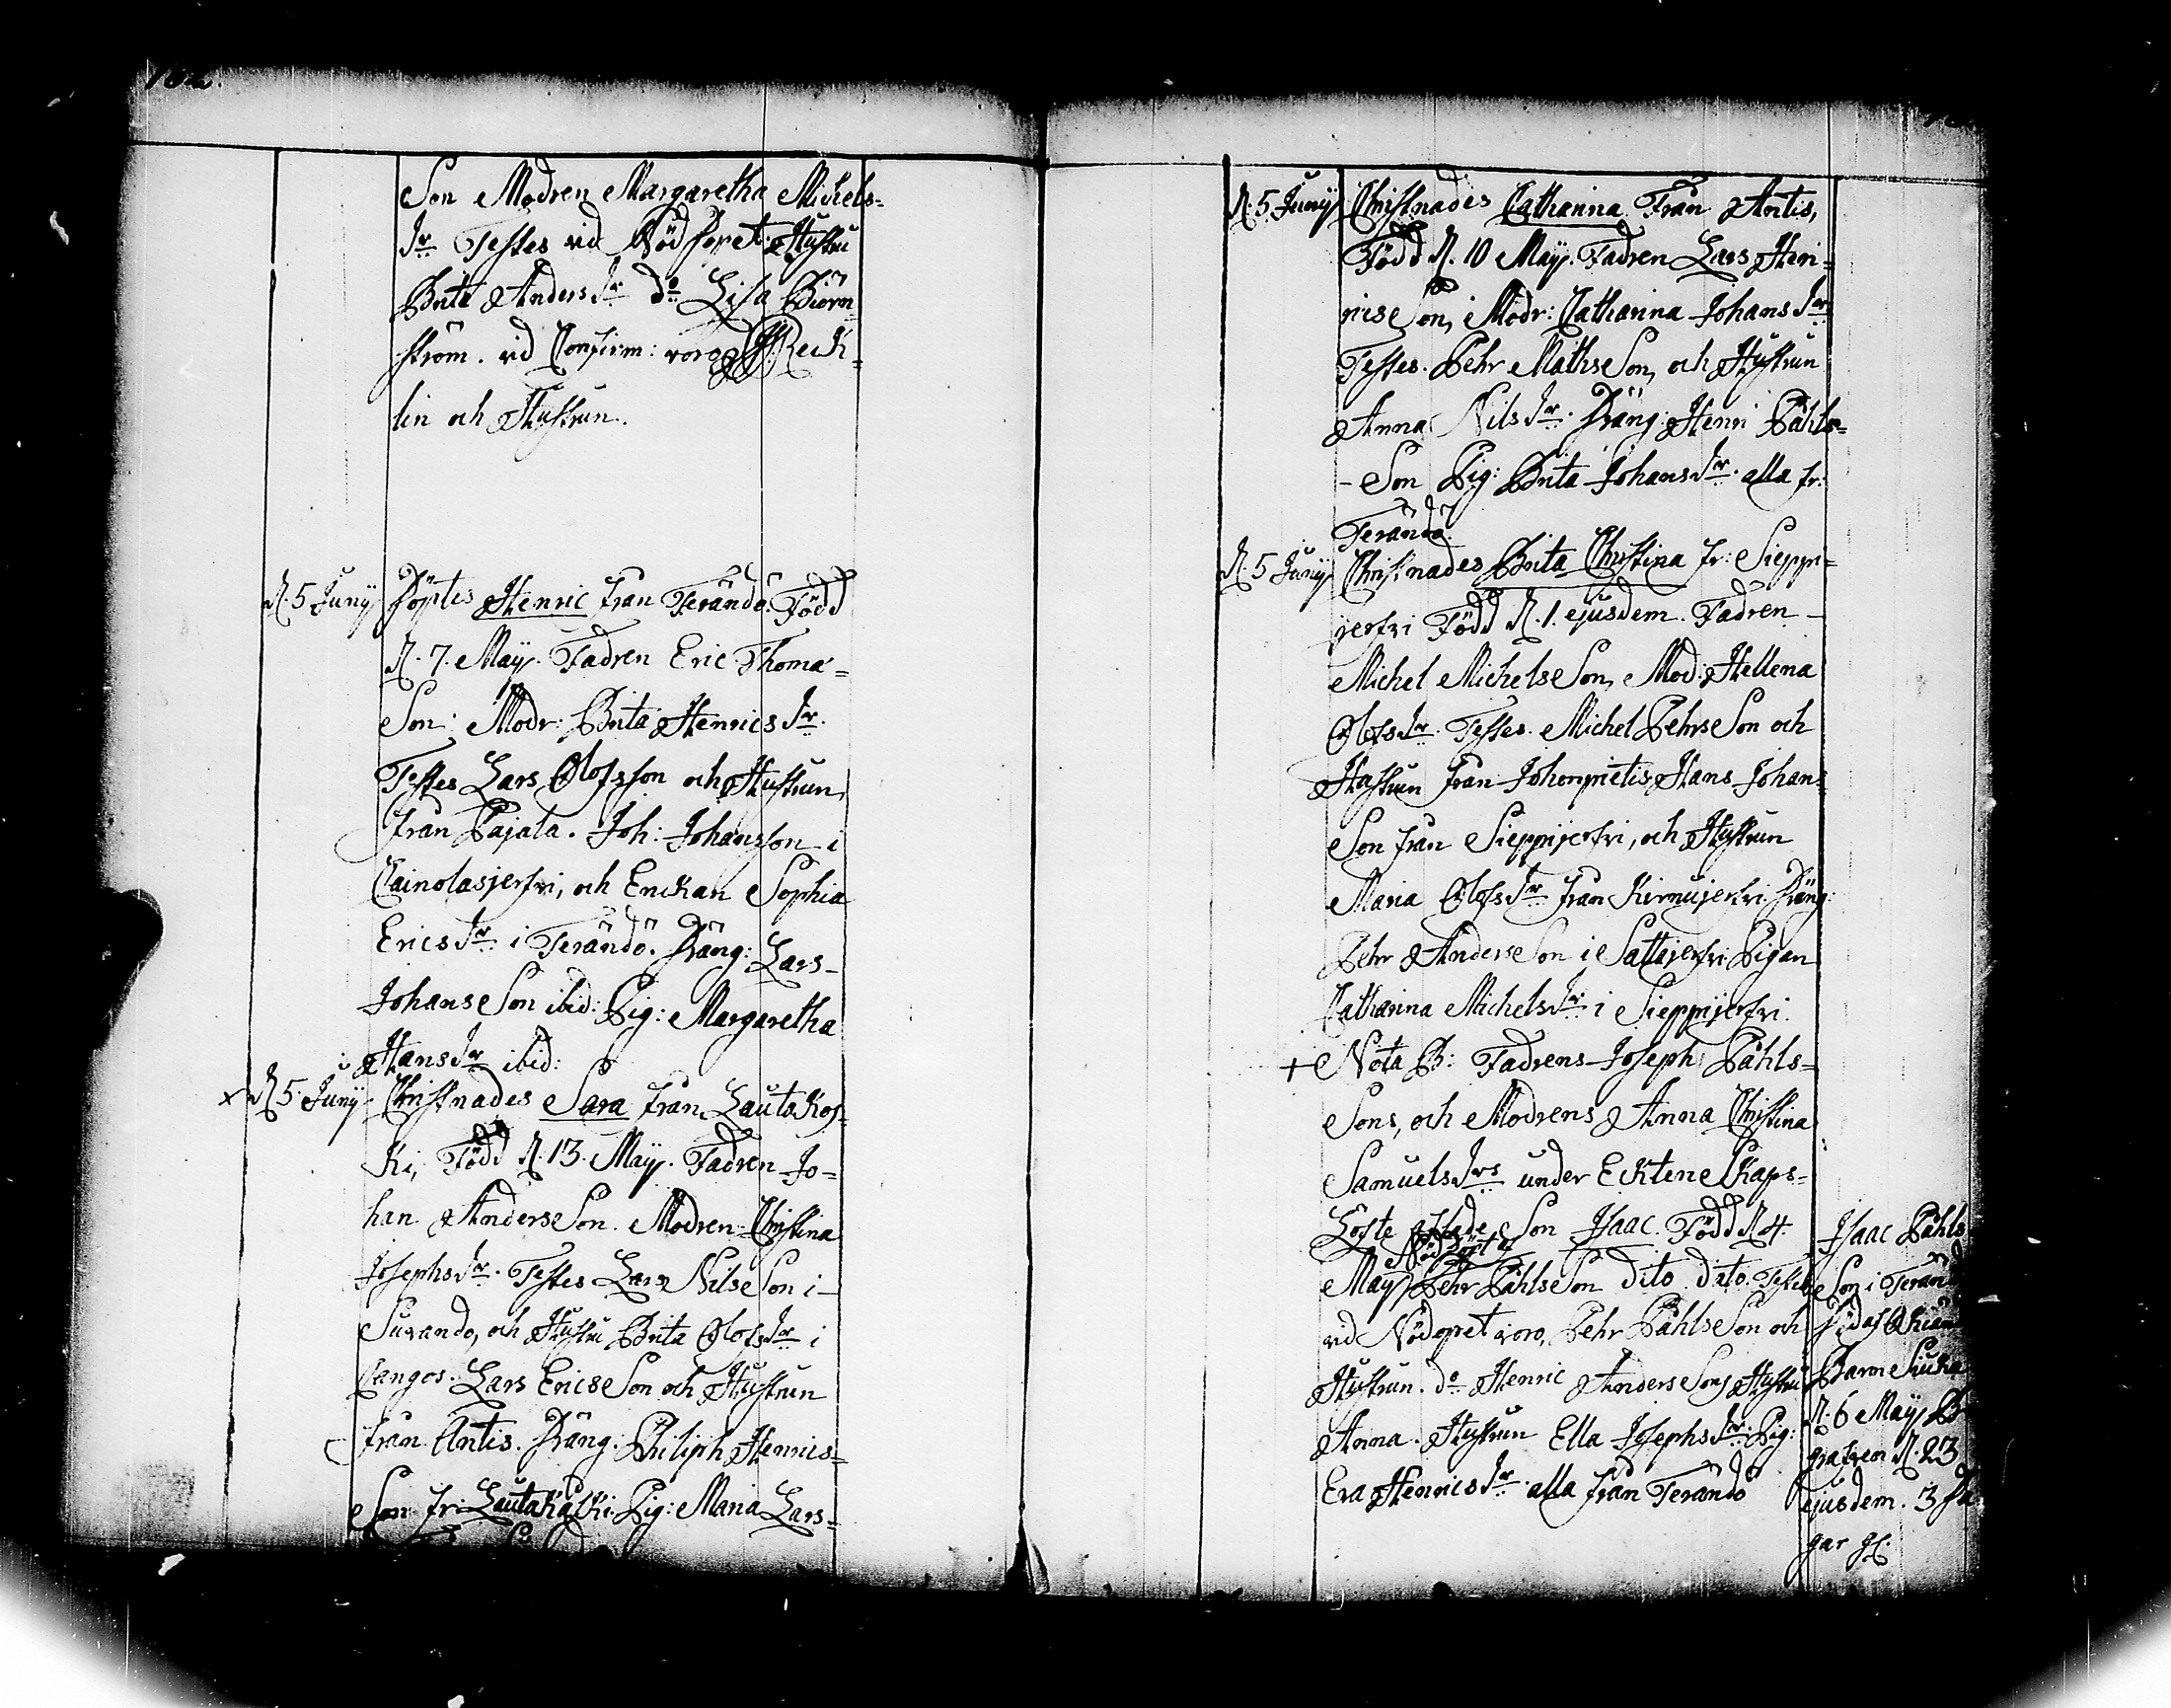 Son Modren Margaretha Michels=
dr Testes vid Nöddopet Hustru
Brita Anders dr do Lisa Biörn
ström. vid Confirm: voro H Reck=
lin och Hustrun.
D. 5 Junij Döptes Henric från Terändö. Född
D. 7. Maij. Fadren Eric Thoma=
Son: Modr: Brita Henrics dr.
Testes Lars Olofsson och Hustrun,
från Pajala. Joh: Johansson i
Cainolasjerfvi, och Enckan Sophia
Erics dr i Terändö. Dräng: Lars
Johans Son ibid: Pig: Margaretha
Hans dr ibid:
x D. 5. Junij Christnades Sara från Lautakos=
ki, Född D. 13. Maij. Fadren Jo=
han Anders Son. Modren Christina
Josephs dr. Testes Lars Nils Son i
Surando, och Hustru Brita Olofs dr i
Cangos. Lars Erics Son och Hustrun
från Antis. Dräng: Philiph Henrics=
Son fr: Lautakåski. Pig: Maria Lars=
D. 5 Junij Christnades Catharina Från Antis,
Född D. 10 Maij. Fadren Lars Hen=
rics Son, Modr: Catharina Johans dr
Testes. Pehr Maths Son, och Hustrun
Anna Nils dr. Dräng: Henri Påhls=
- Son Pig: Brita Johans dr. alla fr:
Terändö.
D. 5 Junij Christnades Brita Christina fr: Sieppi=
jerfvi Född D. 1. ejusdem. Fadren
Michel Michels Son, Mod: Hellena
Olofs dr. Testes. Michel Pehrs Son och
Hustrun från Johonpietis, Hans Johans
Son från Sieppijerfvi, och Hustrun
Maria Olofs dr från Kirnujerfvi. Dräng:
Pehr Anders Son i Sattajerfvi Pigan
Catharina Michels dr i Sieppijerfvi.
+ Nota B: Fadrens Joseph Påhls=
Sons, och Modrens Anna Christina
Samuels drs under Ecktenskaps=
Löfte aflade Son Isaac. Född D. 4.
Nöddöpt af
Maij Pehr Påhls Son dito dito. Testes
vid Nödopet voro, Pehr Påhls Son och
Hustrun. do Henric Anders Sons Hustru
Anna. Hustrun Ella Josephs dr. Pig:
Eva Henrics dr. alla från Terändö
Isaac Påhls
Son i Teränd
död af
Barn Siuka
D. 6 Maij B
grafven D. 23
ejusdem. 3 da
gar gl.